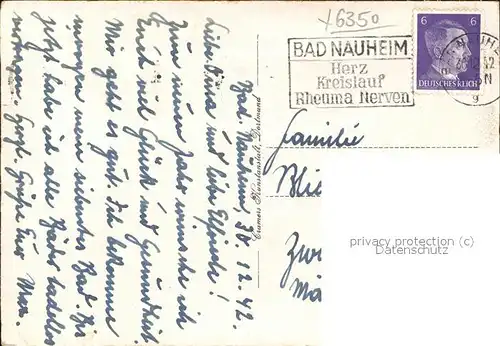 +6350
BAD NAUHEIM
Herz
Kreislauf
Rheuma Nerven
6 6
DEUTSCHES REICH
NAUHEIM
42
g
Bad Nauheim, 30.12.42.
Liebe und liebe Elfriede!
Zum neuen Jahr wünsche ich
Euch viel Glück und Gesundheit.
Mir geht es gut. Ich bekomme
morgen mein siebentes Bad. Bis
jetzt habe ich alle Bäder tadellos
vertragen. Herzl. Grüße Eure
Cramers Kunstanstalt, Dortmund
Familie
privacy protection by
oldthing.com